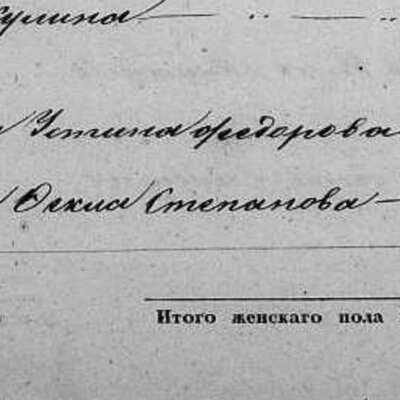 кулина — " — "
Устина Федорова
Ѳекла Степанова —
Итого женскаго пола